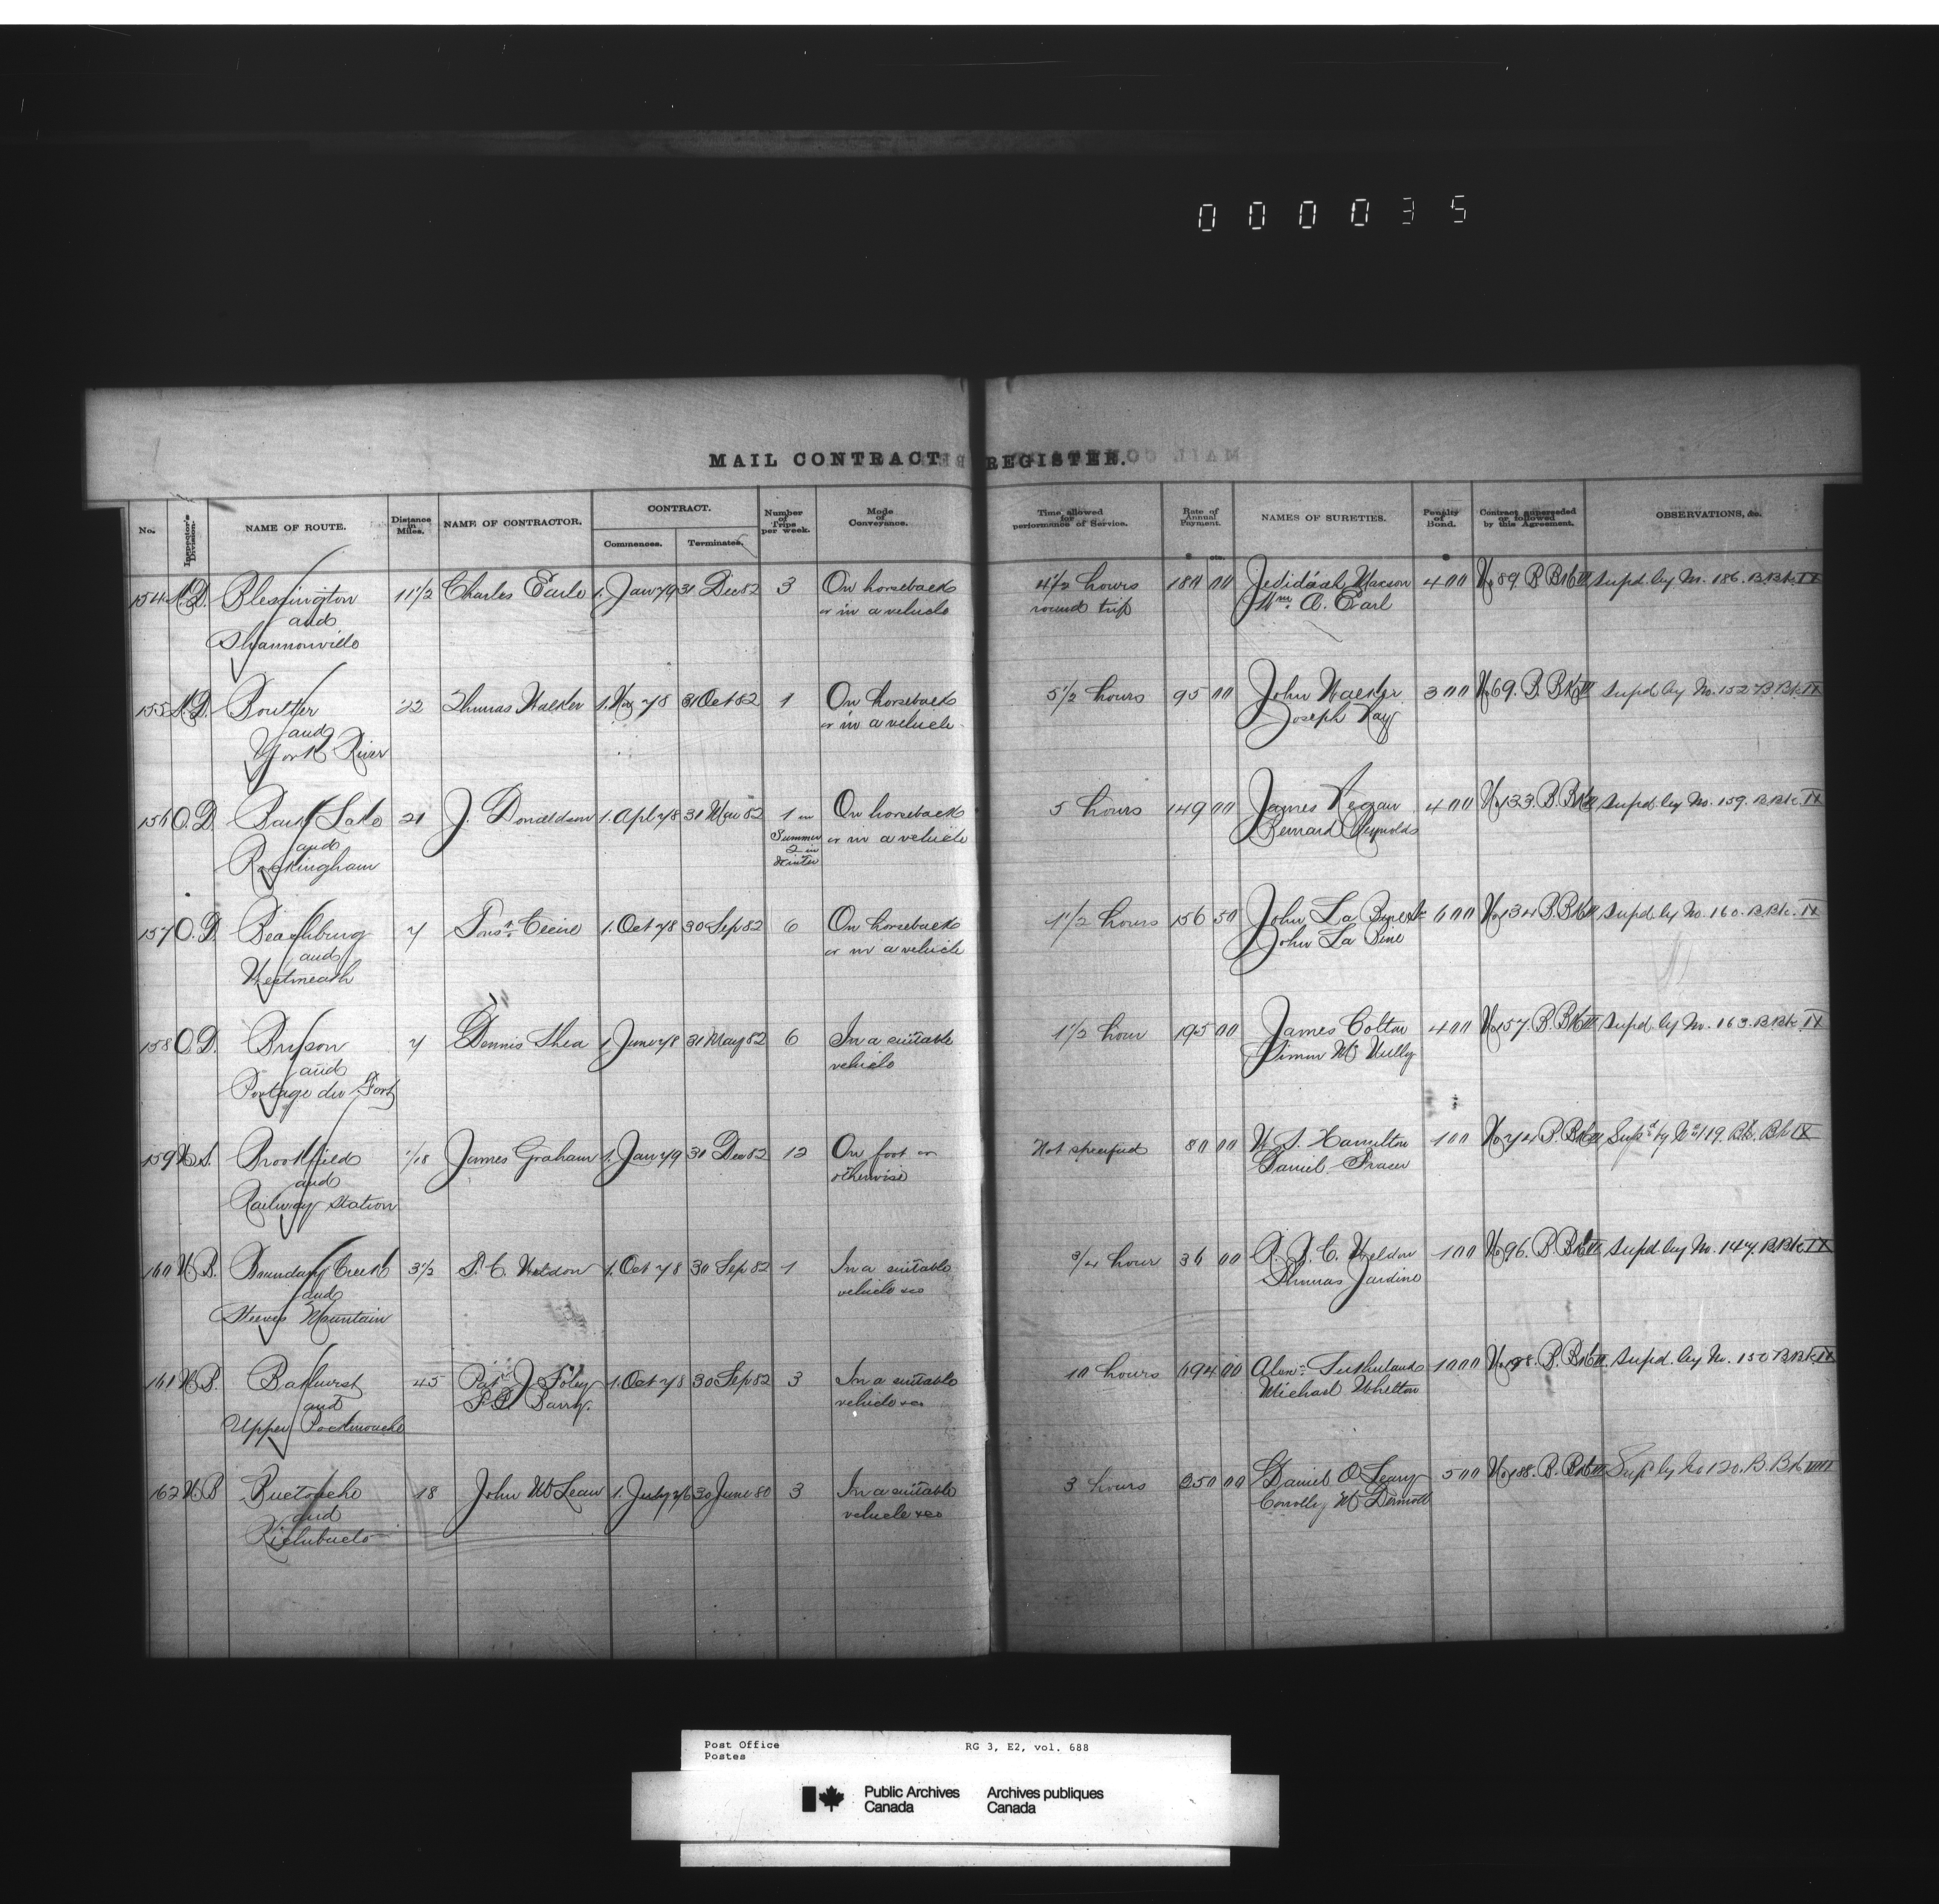 000035
MAIL CONTRACT REGISTER.
No. Inspector's Division. NAME OF ROUTE. Distance in Miles. NAME OF CONTRACTOR. CONTRACT. Commences. Terminates. Number of Trips per week. Mode of Conveyance. Time allowed for performance of Service. Rate of Annual Payment. NAMES OF SURETIES. Penalty of Bond. Contract superseded or followed by this Agreement. OBSERVATIONS, &c.
$ cts. $
154 K.D. Blessington 11 1/2 Charles Earle 1. Jan 79 31 Dec 82 3 On horseback 4 1/2 hours 180 00 Jedidiah Maxson 400 No 89. B Bk III Supd. by No. 186. B Bk. IX
and or in a vehicle round trip Wm. A. Earl
Shannonville
155 K.D. Boulter 22 Thomas Walker 1. Nov 78 31 Oct 82 1 On horseback 5 1/2 hours 95 00 John Walker 300 No 69. B Bk III Supd by No. 152 B Bk IX
and or in a vehicle Joseph Kay
York River
156 O.D. Bark Lake 21 J. Donaldson 1. Apl 78 31 Mar 82 1 in On horseback 5 hours 149 00 James Regan 400 No 133. B Bk III Supd by No. 159. B Bk. IX
and Summer or in a vehicle Bernard Reynolds
Rockingham 2 in
Winter
157 O.D. Beachburg 7 1. Oct 78 30 Sep 82 6 On horseback 1 1/2 hours 156 50 John La Pine Sr 600 No 134 B Bk III Supd by No. 160. B Bk. IX
and or in a vehicle John La Pine
Westmeath
158 O.D. Bryson 7 Dennis Shea 1 June 78 31 May 82 6 In a suitable 1 1/2 hour 195 00 James Colton 400 No 157. B. Bk III Supd by No. 163. B Bk IX
and vehicle Simon McNully
Portage du Fort
159 N.S. Brookfield 1/18 James Graham 1. Jan 79 31 Dec 82 12 On foot or Not specified 80 00 W. S. Hamilton 100 No 74 B. Bk III Supd by No 119. Bk. Bk IX
and otherwise Daniel Fraser
Railway Station
160 N.B. Boundary Creek 3 1/2 S. C. Weldon 1. Oct 78 30 Sep 82 1 In a suitable 3/4 hour 36 00 Weldon 100 No 96. B Bk III Supd by No. 147. B Bk IX
and vehicle &c Thomas Jardine
Steeves Mountain
161 N.B. Bathurst 45 Patk J. Foley 1. Oct 78 30 Sep 82 3 In a suitable 10 hours 694 00 Alexr. Sutherland 1000 No 198. B. Bk III Supd. by No. 150 B Bk IX
and P. B. Barry. vehicle &c Michael Whelton
Upper Pockmouche
162 N.B. Buctouche 18 John McLean 1. July 76 30 June 80 3 In a suitable 3 hours 250 00 Daniel O'Leary 500 No 188. B. Bk III Supd by No 120. B. Bk VIII
and vehicle &c Connolly McDermott
Richibucto
Post Office RG 3, E2, vol. 688
Postes
Public Archives Archives publiques
Canada Canada